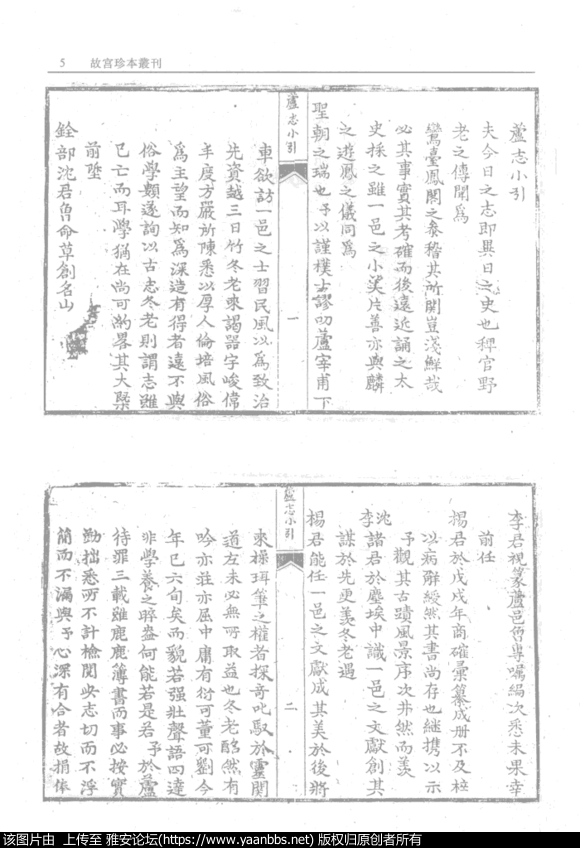 5 故宮珍本叢刊
蘆志小引
夫今日之志即異日之史也稗官野
老之傳聞爲
鸞臺鳳閣之叅稽其所關豈淺鮮哉
必其事實其考確而後遠近誦之太
史採之雖一邑之小美片善亦與麟
之遊鳳之儀同爲
聖朝之瑞也予以謹樸士謬叨蘆宰甫下
蘆志小引
一
車欲訪一邑之士習民風以爲致治
先資越三日竹冬老來謁器字峻偉
丰度方嚴所陳悉以厚人倫培風俗
爲主望而知爲深造有得者遠不與
俗學類遂詢以古志冬老則謂志雖
已亡而耳學猶在尚可約畧其大槩
前陞
銓部沈君曾命草創名山
李君視篆蘆邑曾專囑編次悉未果幸
前任
楊君於戊戌年商確彙纂成册不及梓
以病辭綬然其書尚存也繼携以示
予觀其古蹟風景序次井然而羨
沈
李諸君於塵埃中識一邑之文獻創其
謀於先更羨冬老遇
楊君能任一邑之文獻成其美於後將
蘆志小引
二
來操珥筆之權者探奇叱馭於靈關
道左未必無所取益也冬老酡然有
吟亦莊亦屈中庸有衍可董可劉今
年已六旬矣而貌若强壯聲語四達
非學養之睟盎何能若是若予於蘆
待罪三載雖鹿鹿簿書而事必按實
勤拙悉所不計檢閱此志切而不浮
簡而不漏與予心深有合者故捐俸
该图片由 上传至 雅安论坛(https://www.yaanbbs.net) 版权归原创者所有